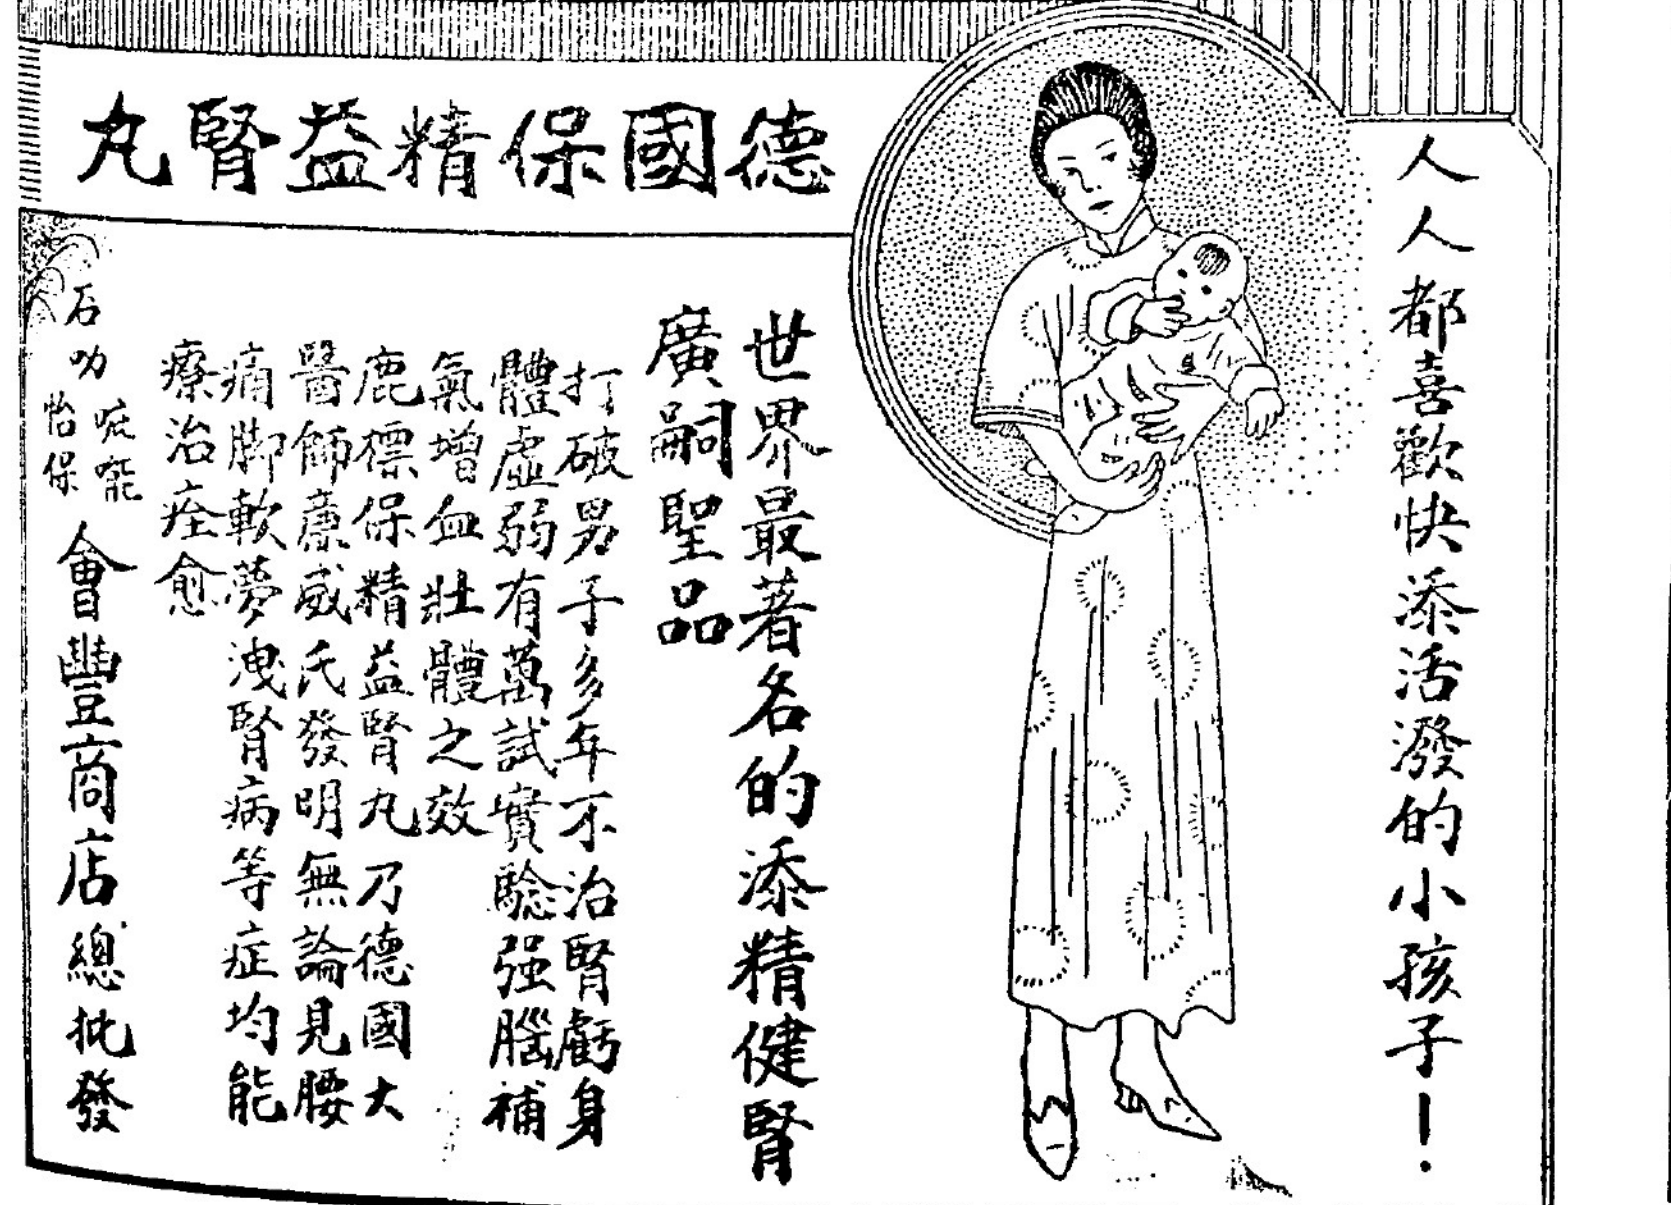 人人都喜歡快添活潑的小孩子！
德國保精益腎丸
世界最著名的添精健腎
廣嗣聖品
打破男子多年不治腎虧身
體虛弱有萬試實驗强腦補
氣增血壯體之效
鹿標保精益腎丸乃德國大
醫師廉威氏發明無論見腰
痛脚軟夢洩腎病等症均能
療治痊愈
石叻
吡能
怡保
會豐商店總批發